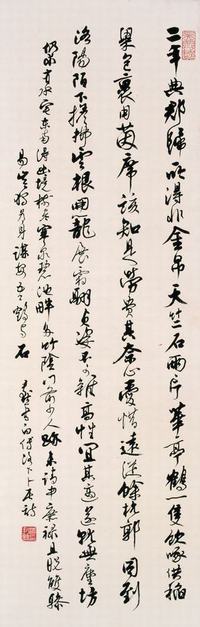 三年典郡歸所得非金帛天竺石兩片華亭鶴一隻飲啄供稻
粱包裹用茵席誠知是勞費其奈心愛惜遠從餘杭郭同到
洛陽陌下擔拂雲根開籠展霜翮貞姿不可雜高性宜其適遂就無塵坊
仍求有水宅東南得幽境樹老寒泉碧池畔多竹陰門前少人跡未請中庶祿且脫雙驂
易豈獨為身謀安吾鶴與石
白傅洛下卜居詩